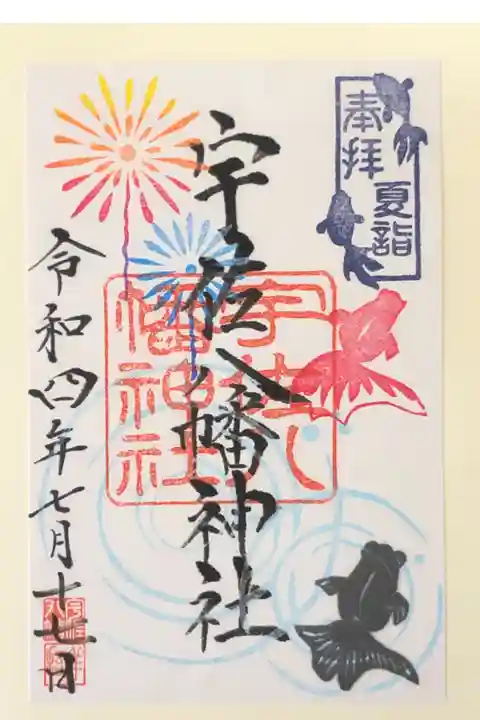 奉拝
夏詣
宇佐八幡神社
宇佐八
幡神社
令和四年七月十七日